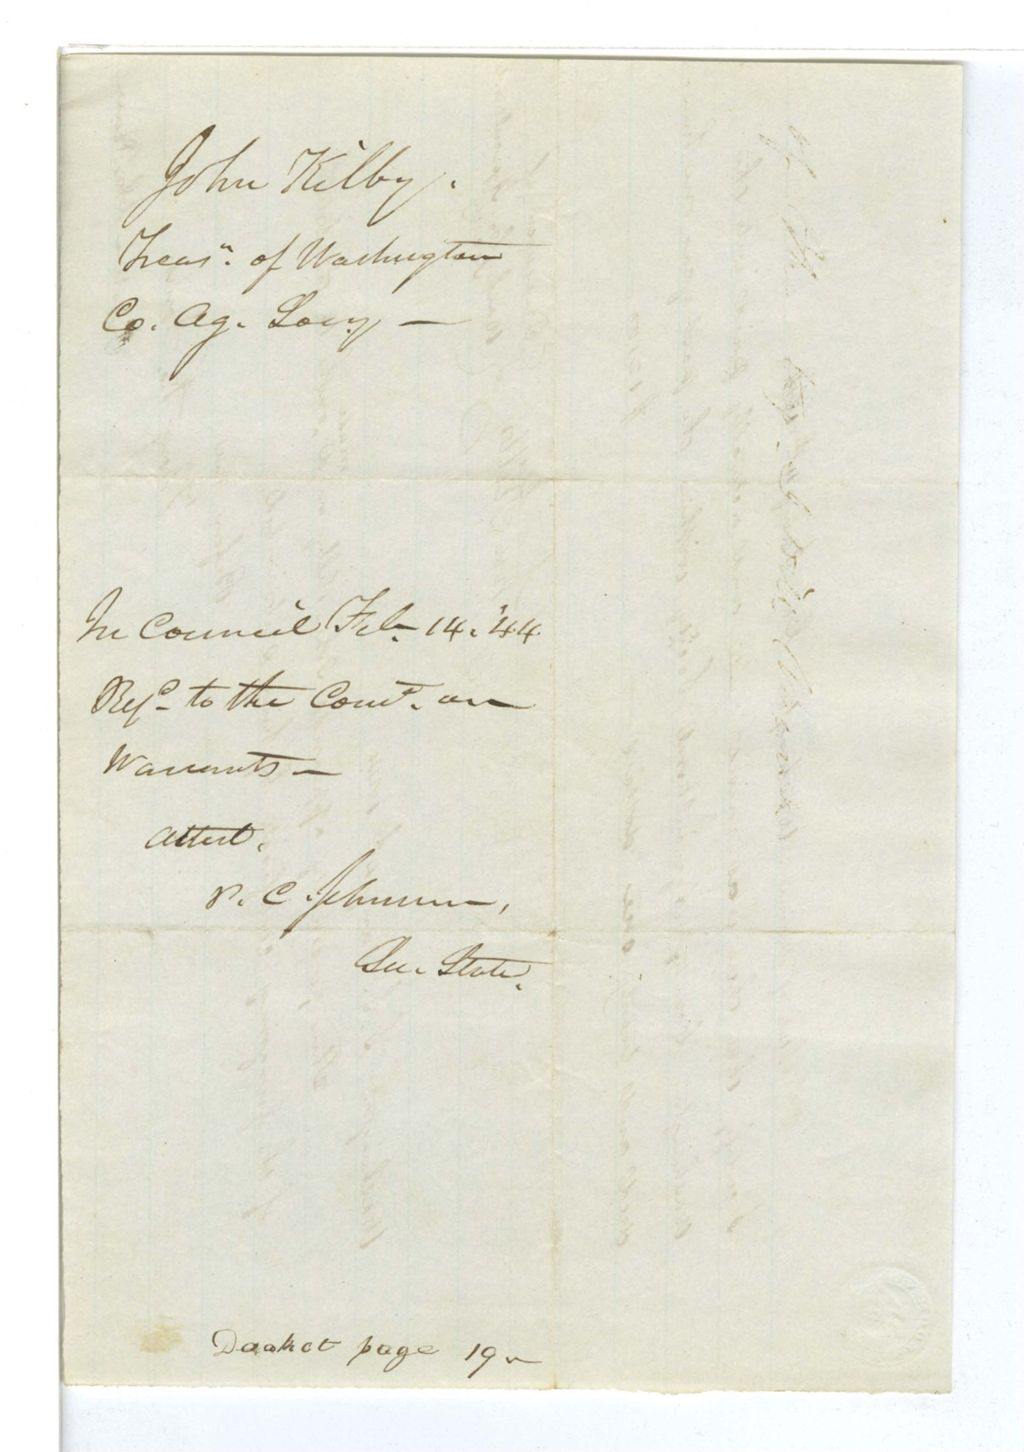 John Kilby.
Treasr. of Washington
Co. Ag. Socy —
In Council Feb. 14. '44
Refd. to the Comt. on
Warrants —
Attest.
P. C. Johnson,
Sec. State.
Doohet page 19